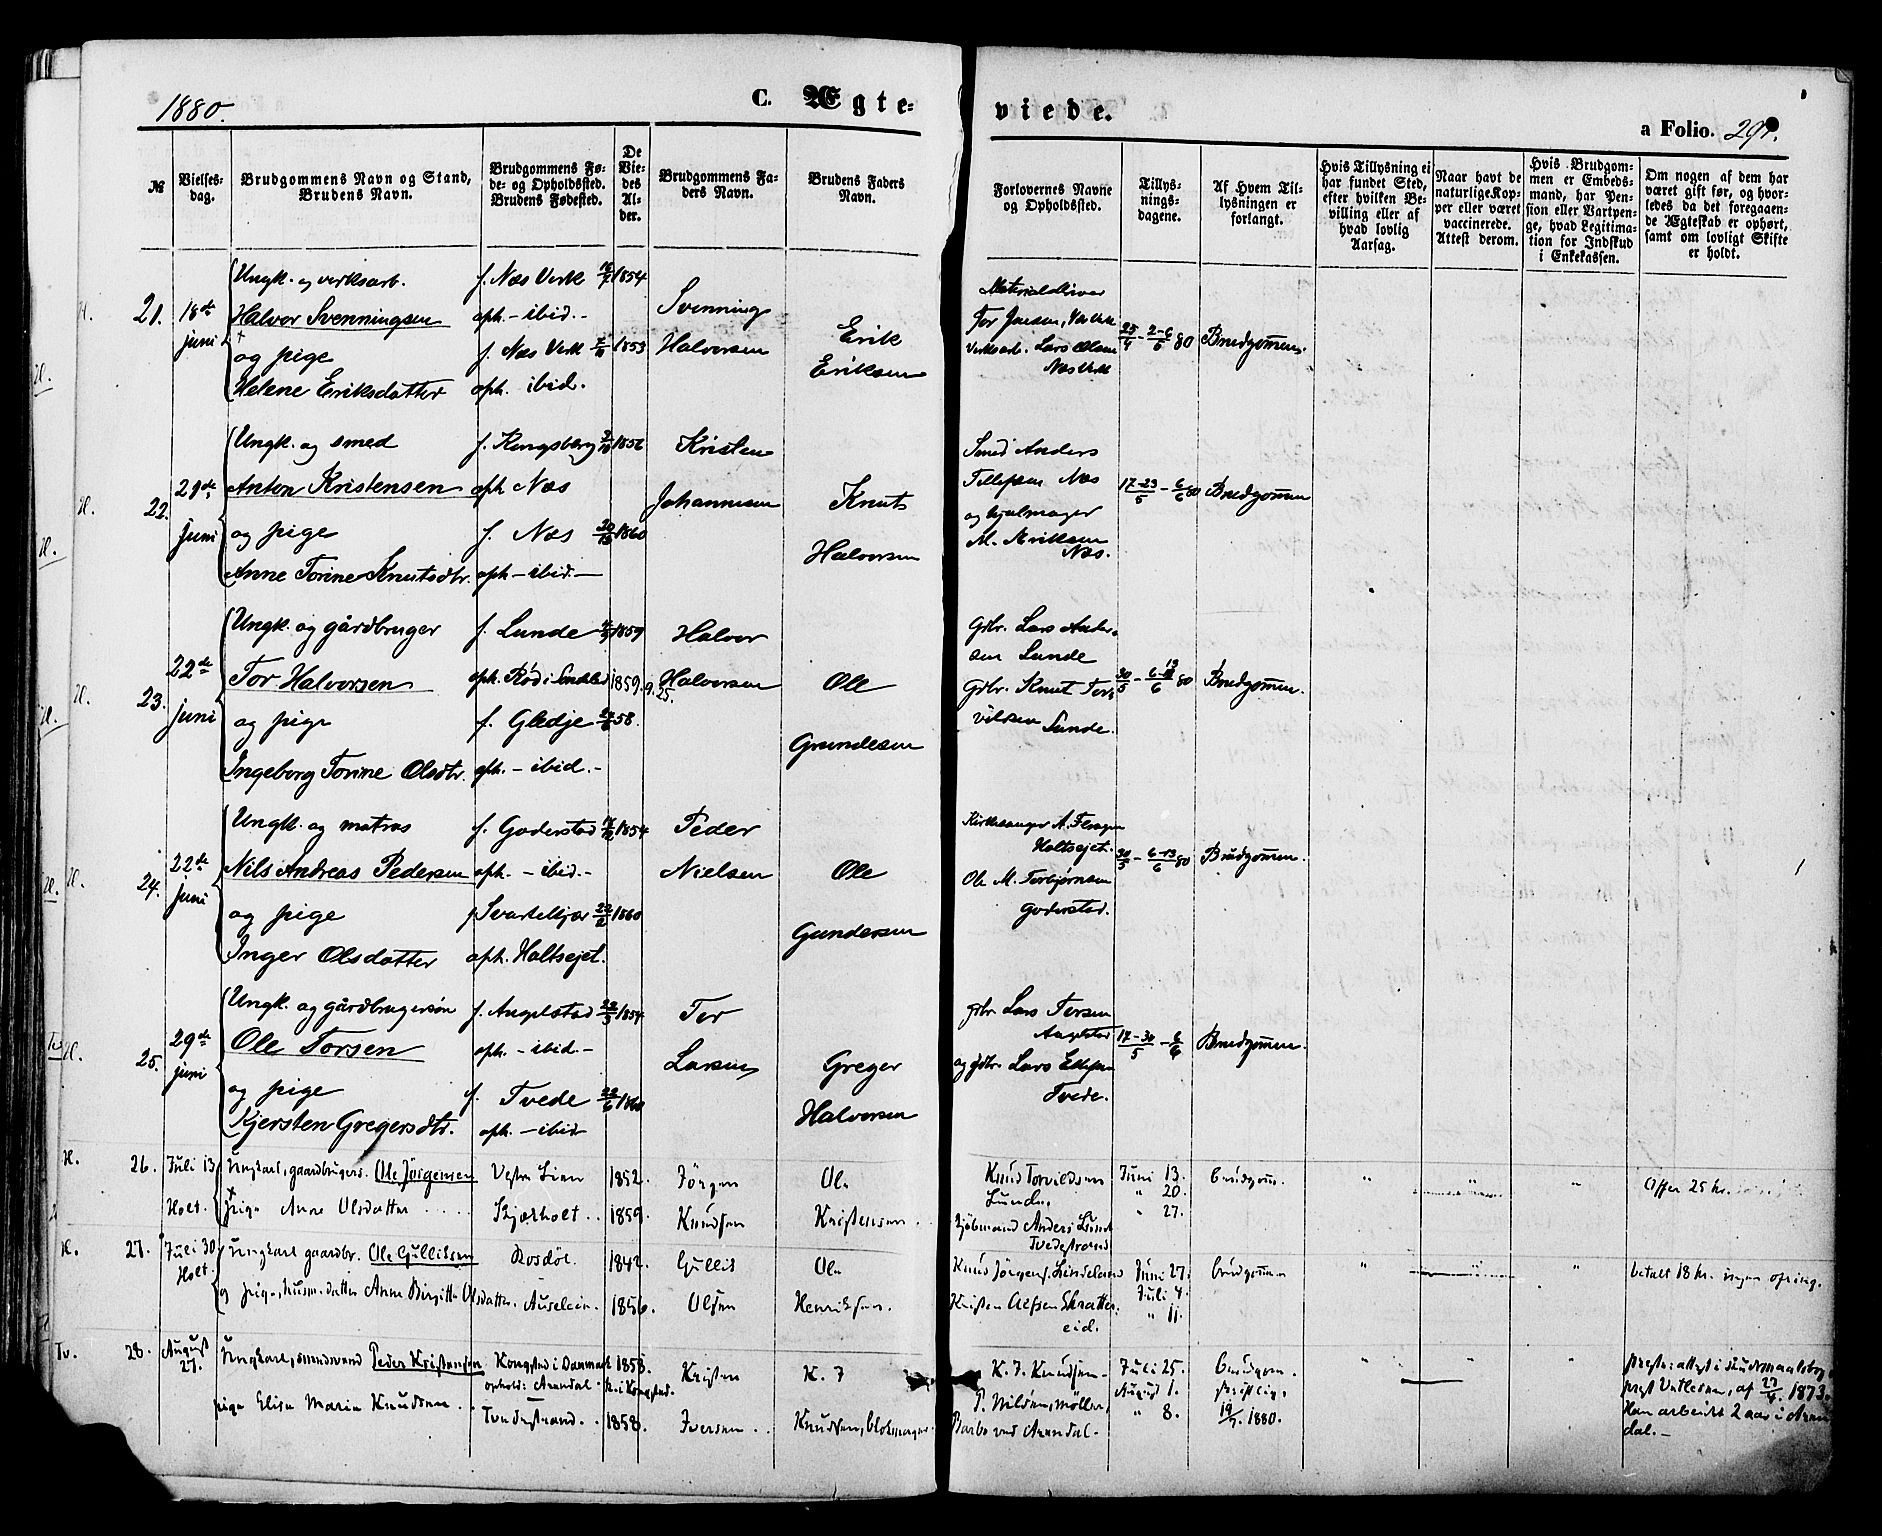 1880.
C. Ægte=
viede.
a Folio. 297.
№
Vielses-
dag.
Brudgommens Navn og Stand,
Brudens Navn.
Brudgommens Fø-
de- og Opholdssted.
Brudens Fødested.
De
Vie-
des
Al-
der.
Brudgommens Fa-
ders Navn.
Brudens Faders
Navn.
Forlovernes Navne
og Opholdssted.
Tillys-
nings-
dagene.
Af Hvem Til-
lysningen er
forlangt.
Hvis Tillysning ei
har fundet Sted,
efter hvilken Be-
villing eller af
hvad lovlig
Aarsag.
Naar havt de
naturlige Kop-
per eller været
vaccinerede.
Attest derom.
Hvis Brudgom-
men er Embeds-
mand, har Pen-
sion eller Vartpen-
ge, hvad Legitima-
tion for Indskud
i Enkekassen.
Om nogen af dem har
været gift før, og hvor-
ledes da det foregaaen-
de Ægteskab er ophørt,
samt om lovligt Skifte
er holdt.
H. 21. 18de juni
Ungk. og verksarb. f. Næs Verk 1854
Halvor Svenningsen oph. - ibid. - Svenning Halvorsen
og pige f. Næs Verk 1853 Erik Eriksen
Helene Eriksdatter oph. ibid.
Tor Jensen,
Verksarb. Lars Olsen
Næs Verk
25/4 - 2-6/5 80 Brudgommen.
H. 22. 21de juni
Ungk. og smed f. Kongsberg 1856 Kristen
Anton Kristensen oph Næs Johannesen
og pige f. Næs 1860 Knut
Anne Torine Knutsdtr. oph - ibid. - Halvorsen
Smed Anders
Tellefsen Næs
og hjulmager
M. Eriksen
Næs.
17-23/5 - 6/6 80 Brudgommen
H. 23. 22de juni
Ungk. og gårdbruger f. Lunde 1859 Halvor
Tor Halvorsen oph. Rød i Søndeled 1859. 9.25. Halvorsen
og pige f. Gledje 58. Ole
Ingeborg Torine Olsdtr. oph. - ibid. - Grundesen
Grbr. Lars Ander-
sen Lunde
Grbr. Knut Tor-
vildsen Lunde.
30/5 - 6-13/6 80 Brudgommen.
H. 24. 22de juni
Ungk. og matros f. Goderstad 1854 Peder
Nils Andreas Pedersen oph. - ibid. - Nielsen
og pige f Svartekjær 1860 Ole
Inger Olsdatter oph. Holtsejet. Gundersen
Kirkesanger A.
Holtsejet.
Ole M. Torbjørnsen
Goderstad.
30/5 - 6-13/6 80 Brudgommen.
H. 25. 29de juni
Ungk. og gårdbrugersøn f. Angelstad 22/3 1854 Tor
Ole Torsen oph. - ibid - Larsen
og pige f. Tvede 22/6 1860 Greger
Kjersten Gregersdtr. oph. - ibid Halvorsen
grbr Lars Torsen
Angelstad
og grbr. Lars
Tvede.
17-30/5 - 6/6 Brudgommen.
H. 26. Juli 13 Ungkarl, gaardbrugers. Ole Jörgensen Vestre Lien 1852. Jörgen
Holt. pige Anne Olsdatter Skjærholt 1859. Knudsen
Ole
Kristensen
Knud Torvildsen
Lunde.
Kjøbmand Anders Lund
Tvedestrand
Juni 13.
" 20.
" 27.
brudgom. " " " Offer 25 kr.
H. 27. Juli 30 Ungkarl gaardbr. Ole Gulliksen Rosdöl 1842. Gullik
Holt og pige, husm.datter Anne Birgitte Olsdatter. 1856. Olsen
Ole
Henriksen.
Knud Jørgens. Lindeland
Kristen Alfsen Skratter-
eid.
Juni 27.
Juli 4.
" 11.
brudgommen " " " betalt 18 kr. ingen ofring.
Tv. 28. August 27. Ungkarl, Peder Kristensen Kongsted i Danmark 1853 Kristen
ophold: Arendal
pige Elise Marie Knudsen Tvedestrand. 1858. Iversen
K. J.
Knudsen, blokmager
K. J. Knudsen
P. Nilsen, møller,
Barbo ved Arendal.
Juli 25.
August 1.
" 8.
brudgom.
skriftlig.
19/7. 1880.
" " prestattest i skudsmaalsbog
prest af 27/4. 1873.
Han arbeidet 2 aar i Aren-
dal. -